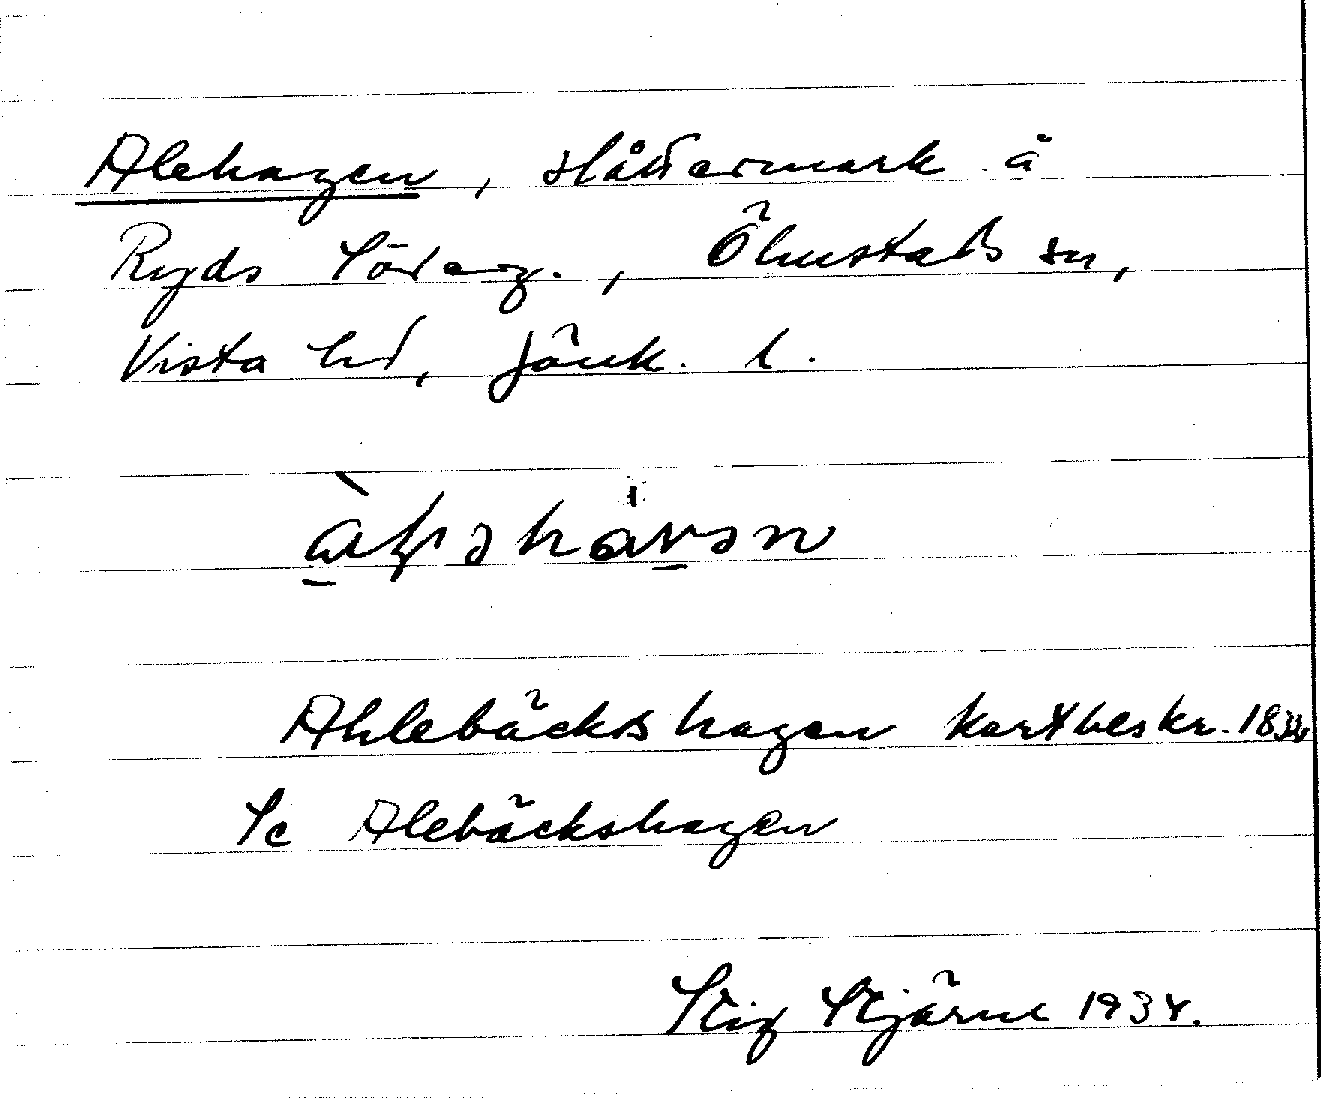 Alehagen, slåttermark å
Ryds Söderg., Ölmstads sn,
Vista hd, Jönk. l.
Ahlebäckshagen kartbeskr.
Se Alebäckshagen
Stig Stjärne 1934.